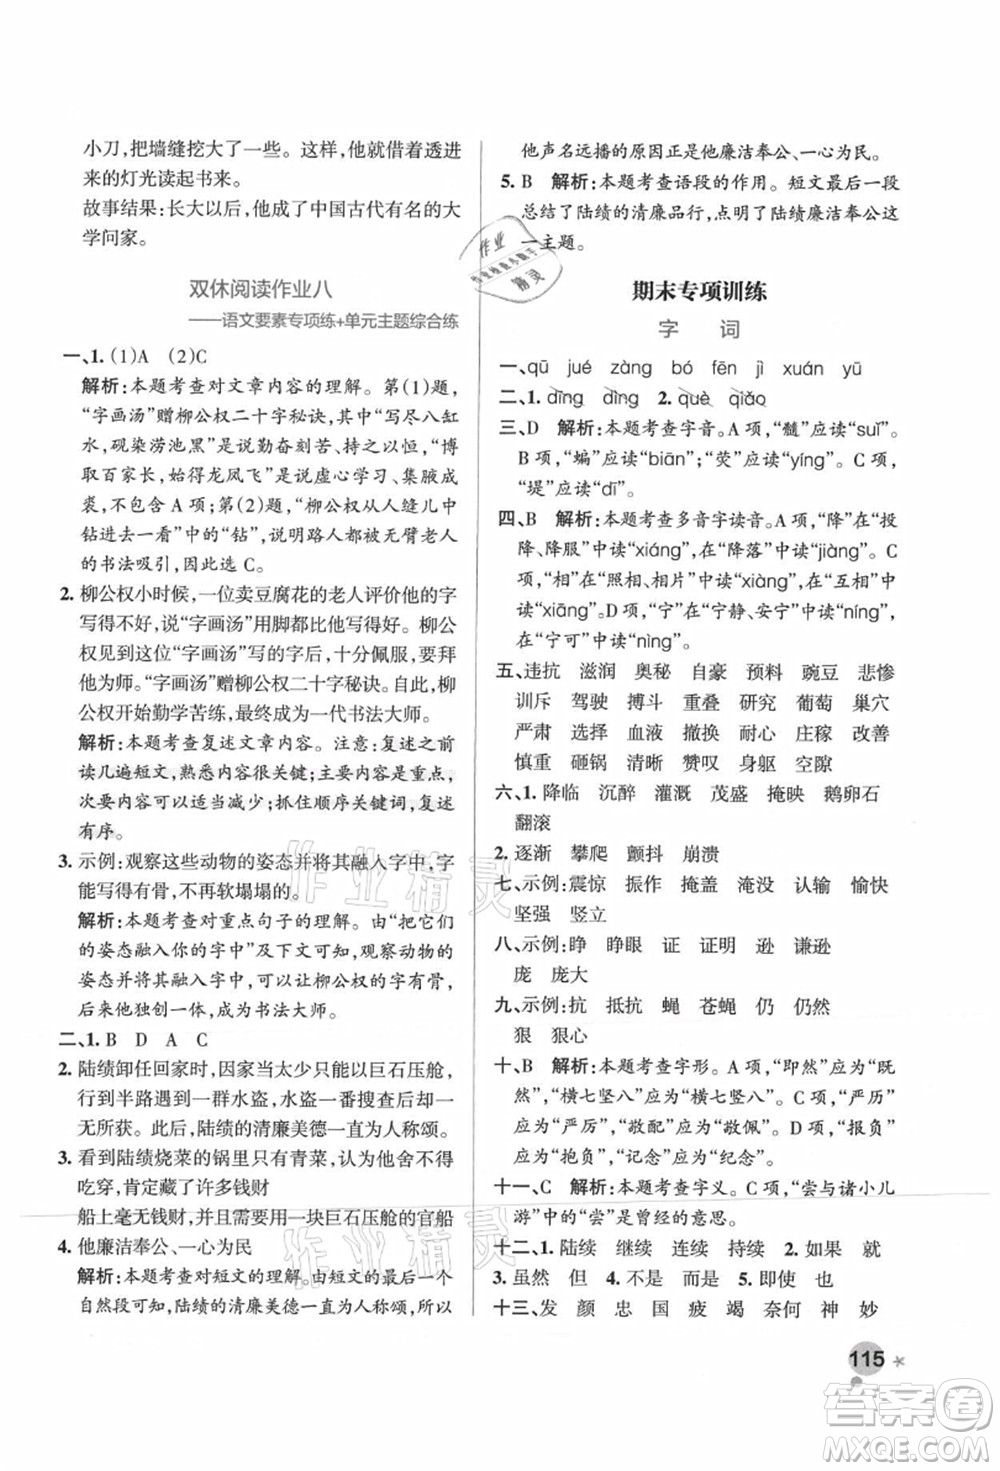 小刀,把墙缝挖大了一些。这样,他就借着透进
来的灯光读起书来。
故事结果:长大以后,他成了中国古代有名的大
学问家。
双休阅读作业八
——语文要素专项练+单元主题综合练
一、1. (1)A (2)C
解析:本题考查对文章内容的理解。第(1)题,
“字画汤”赠柳公权二十字秘诀。其中“写尽八缸
水,砚染涝池黑”是说勤奋刻苦、持之以恒,“博
取百家长,始得龙凤飞”是指虚心学习、集腋成
裘,不包含 A 项;第(2)题,“柳公权从人缝儿中
钻进去”中的“钻”,说明路人都被无臂老人
的书法吸引,因此选 C。
2. 柳公权小时候,一位卖豆腐花的老人评价他的字
写得不好,说“字画汤”用脚都比他写得好。柳公
权见到“字画汤”写的字后,十分佩服,要拜
他为师。“字画汤”赠柳公权二十字秘诀。自此,柳
公权开始勤学苦练,最终成为一代书法大师。
解析:本题考查复述文章内容。注意:复述之前
读几遍短文,熟悉内容很关键;主要内容是重点,
次要内容可适当减少;抓住顺序关键词,复述
有序。
3. 示例:观察这些动物的姿态并将其融入字中,字
能写得有骨,不再软塌塌的。
解析:本题考查对重点句子的理解。由“把它们
的姿态融入你的字中”及下文可知,观察动物的
姿态并将其融入字中,可以让柳公权的字有骨,
与身体融为一体,成为书法大师。
二、1. B D A C
2. 陆绩卸任回家时,因家当太少只能以巨石压舱,
行到半路遇到一群水盗,水盗一番搜查过后一
无所获。自此,陆绩的清廉美德一直为人称颂。
3. 看到陆绩烧菜的锅里只有青菜,认为他舍不得
吃穿,肯定藏了许多钱财
船上毫无钱财,却有一块用以压舱的巨石
4. 他廉洁奉公、一心为民
解析:本题考查对短文的理解。由短文最后一个
自然段可知,陆绩的清廉美德一直为人称颂,所以
他声名远播的原因正是他廉洁奉公、一心为民。
5. B 解析:本题考查语段的作用。短文最后一句
总结了陆绩的清廉品行,点明了陆绩廉洁奉公这
一主题。
期末专项训练
字 词
一、qū jué zàng bó fēn jì xuán yū
二、1. dīng dìng 2. què qiǎo
三、D 解析:本题考查字音。A 项,“髓”应读“suǐ”。
B 项,“蝙”应读“biān”;“荧”应读“yíng”。C 项,
“堤”应读“dī”。
四、B 解析:本题考查多音字读音。A 项,“降”在“投
降、降服”中读“xiáng”,在“降落”中读“jiàng”。C
项,“相”在“照相、相片”中读“xiàng”,在“互相”中
读“xiāng”。D 项,“宁”在“宁静、安宁”中读“níng”,
在“宁可”中读“nìng”。
五、违抗 滋润 奥秘 自豪 预料 豌豆 悲惨
训斥 驾驶 搏斗 重叠 研究 葡萄 巢穴
严肃 选择 血液 撤换 耐心 庄稼 改善
慎重 砸锅 清晰 赞叹 身躯 空隙
六、1. 降临 沉醉 灌溉 茂盛 掩映 鹅卵石
翻滚
2. 逐渐 攀爬 颤抖 崩溃
七、示例:震惊 振作 掩盖 淹没 认输 愉快
坚强 竖立
八、示例:睁 睁眼 证 证明 逊 谦逊
庞 庞大
九、示例:抗 抵抗 蝇 苍蝇 仍 仍然
狠 狠心
十、B 解析:本题考查字形。A 项,“即然”应为“既
然”,“横七坚八”应为“横七竖八”。C 项,“严历”
应为“严厉”,“敬配”应为“敬佩”。D 项,“报负”
应为“抱负”,“记念”应为“纪念”。
十一、C 解析:本题考查字义。“尝与诸小儿
游”中的“尝”是曾经的意思。
十二、1. 陆续 继续 连续 持续 2. 如果 就
3. 虽然 但 4. 不是 而是 5. 即使 也
十三、发 颜 忠 国 疲 竭 奈何 神 妙
115
答案圈
MXQE.COM
作业精灵
作业精灵